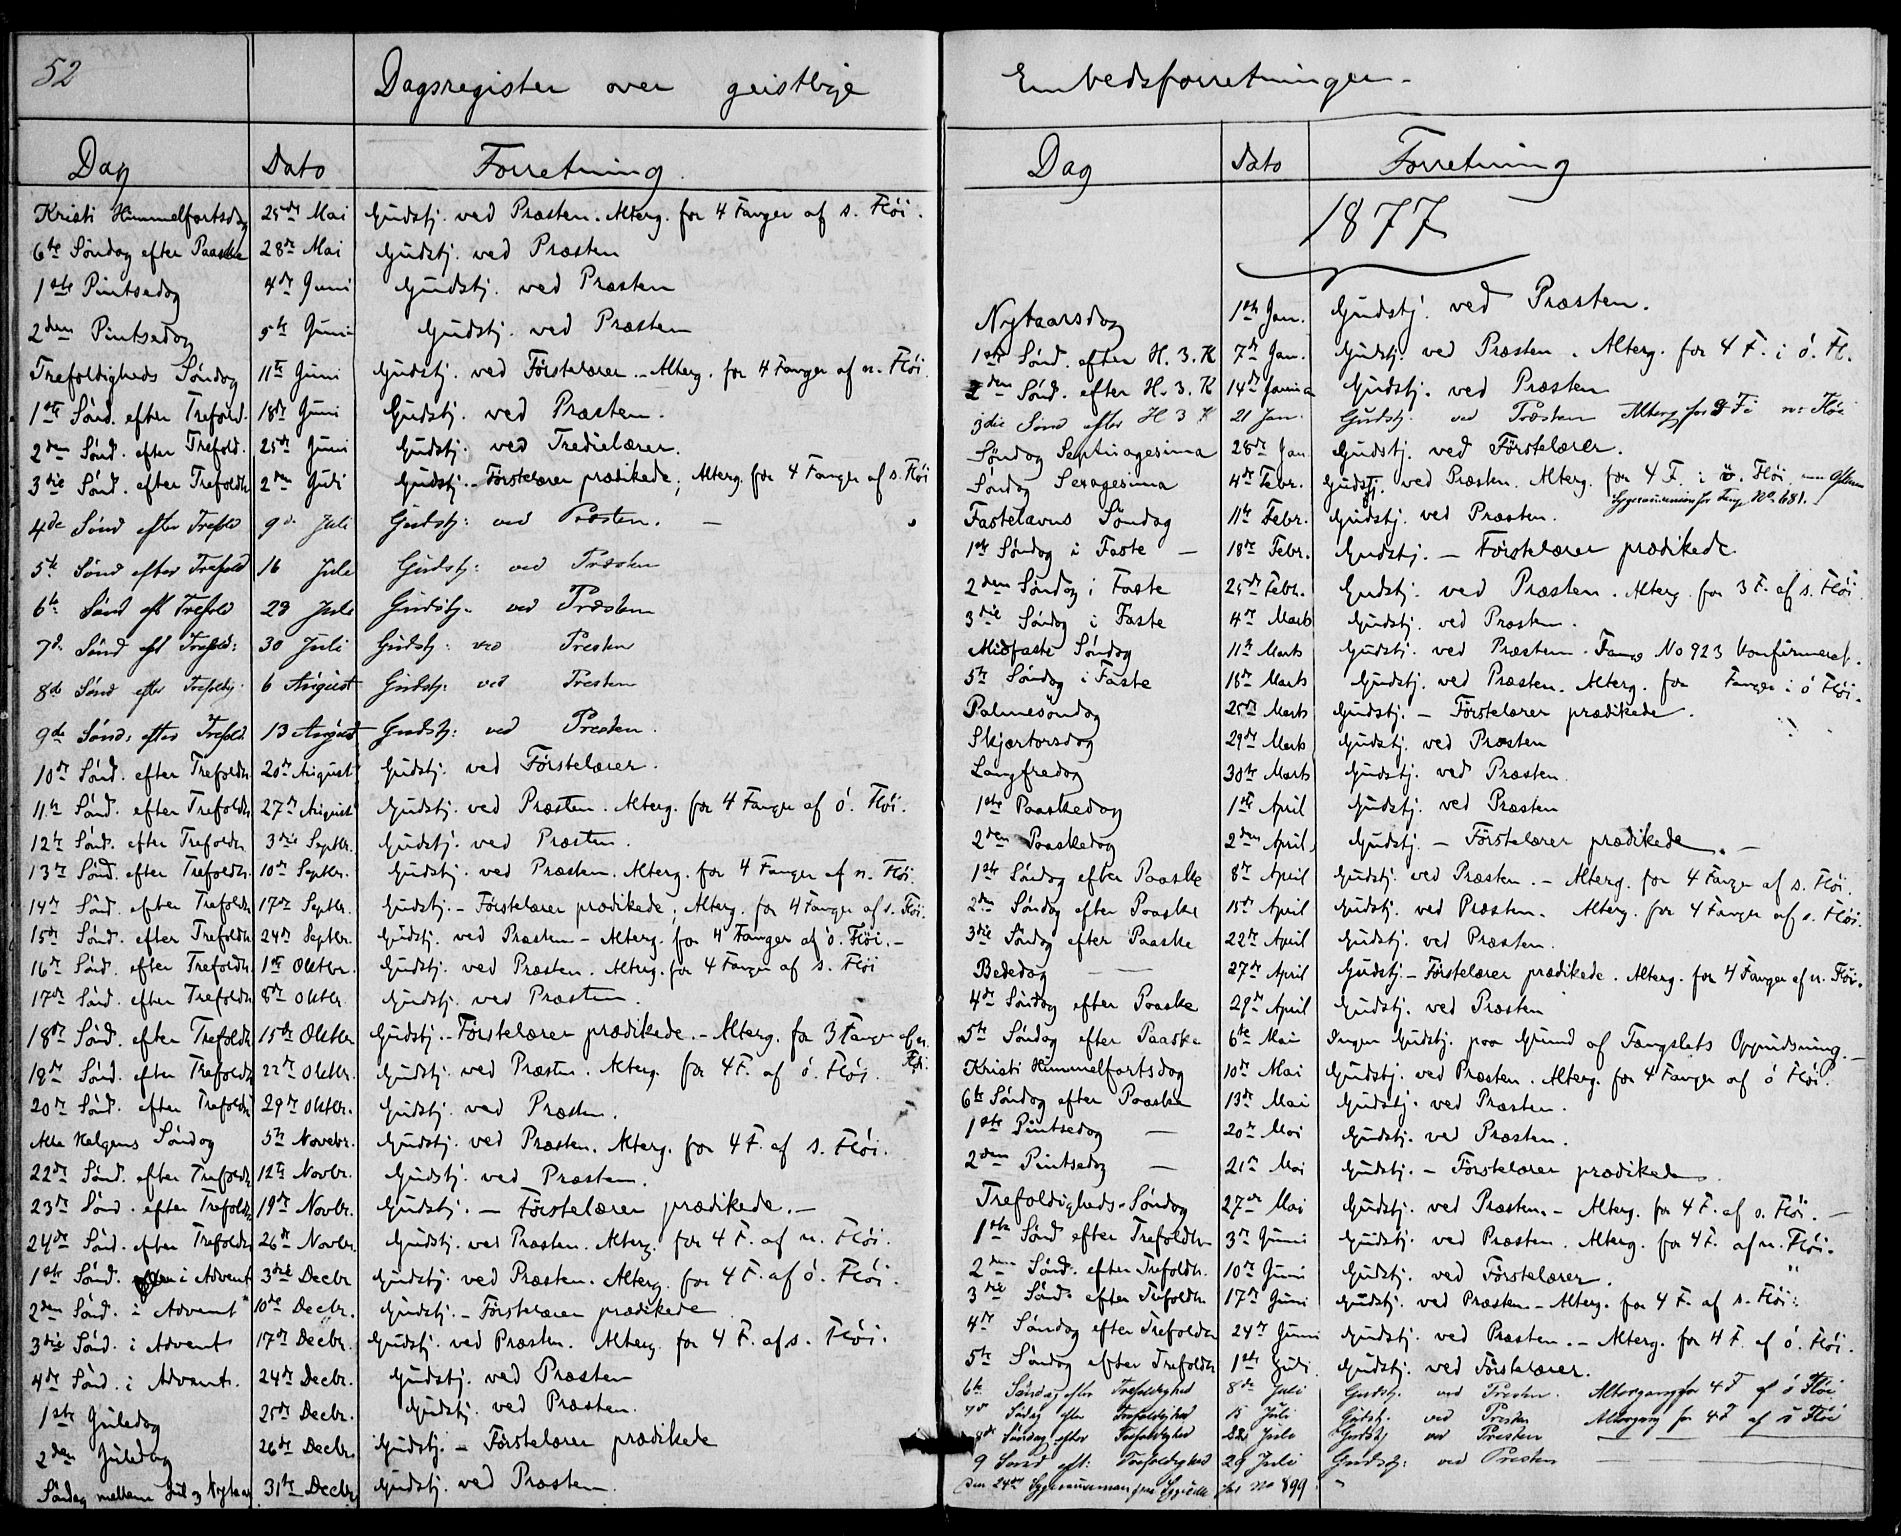 52
Dagsregister over geistlige
Dag Dato Forretning.
Kristi Himmelfartsdag 25de Mai Gudstj. ved Præsten. Alterg. for 4 Fanger af s. Fløi.
6te Søndag efter Paaske 28de Mai Gudstj. ved Præsten
1ste Pintsedag 4de Juni Gudstj. ved Præsten
2den Pintsedag 5te Juni Gudstj. ved Præsten
Trefoldigheds Søndag 11te Juni Gudstj. ved Förstelærer. - Alterg. for 4 Fanger af n. Fløi.
1ste Sønd. efter Trefold. 18de Juni Gudstj. ved Præsten.
2den Sønd. efter Trefold. 25de Juni Gudstj. ved Tredielærer.
3die Sønd. efter Trefoldh 2den Juli Gudstj. - Förstelærer prædikede; Alterg. for 4 Fanger af s. Fløi
4de Sønd efter Trefold 9de Juli Gudstj: ved Præsten. -
5te Sønd efter Trefold 16 Juli Gudstj: ved Præsten
6te Sønd eft Trefold 23 Juli Gudstj: ved Præsten
7de Sønd eft Trefold: 30 Juli Gudstj: ved Presten
8de Sønd efter Trefoldigh 6 August Gudstj: ved Presten
9de Sønd: efter Trefold. 13 August Gudstj: ved Presten.
10de Sønd. efter Trefoldh 20de August Gudstj. ved Förstelærer.
11te Sønd. efter Trefoldh 27de August Gudstj. ved Præsten. Alterg. for 4 Fanger af ö. Fløi.
12te Sønd. efter Trefoldh. 3die Septbr. Gudstj. ved Præsten.
13de Sønd. efter Trefoldh. 10de Septbr. Gudstj. ved Præsten. Alterg. for 4 Fanger af n. Fløi.
14de Sønd. efter Trefoldh 17de Septbr. Gudstj. - Förstelærer prædikede; Alterg. for 4 Fanger af s. Fløi.
15de Sønd. efter Trefoldh 24de Septbr. Gudstj. ved Præsten - Alterg. for 4 Fanger af ö. Fløi. -
16de Sønd. efter Trefoldh. 1ste Oktbr. Gudstj. ved Præsten. Alterg. for 4 Fanger af s. Fløi
17de Sønd. efter Trefoldh 8de Oktbr. Gudstj. ved Præsten.
18de Sønd. efter Trefoldh 15de Oktbr Gudstj. - Förstelærer prædikede. - Alterg. for 3 Fanger af n. Fløi.
19de Sønd. efter Trefoldh 22de Oktbr. Gudstj. ved Præsten. Alterg. for 4 F. af ö. Fløi.
20de Sønd. efter Trefoldh 29de Oktbr. Gudstj. ved Præsten.
Alle Helgens Søndag 5te Novbr. Gudstj. ved Præsten. Alterg. for 4 F. af s. Fløi.
22de Sønd. efter Trefoldh 12te Novbr. Gudstj. ved Præsten.
23de Sønd. efter Trefoldh 19de Novbr. Gudstj. - Förstelærer prædikede. -
24de Sønd. efter Trefoldh 26de Novbr. Gudstj. ved Præsten. Alterg. for 4 F. af n. Fløi.
1ste Sønd. i Advent 3die Decbr Gudstj. ved Præsten. Alterg. for 4 F. af ö. Fløi.
2den Sønd. i Advent 10de Decbr. Gudstj. - Förstelærer prædikede
3die Sønd. i Advent 17de Decbr. Gudstj. ved Præsten. Alterg. for 4 F. af s. Fløi.
4de Sønd. i Advent. 24de Decbr. Gudstj. ved Præsten
1ste Juledag 25de Decbr. Gudstj. ved Præsten.
2den Juledag 26de Decbr Gudstj. - Förstelærer prædikede
Søndag mellem Jul og Nytaar 31te Decbr Gudstj. ved Præsten.
Embedsforretninger -
Dag Dato Forretning
1877
Nytaarsdag 1ste Jan. Gudstj. ved Præsten.
1ste Sønd. efter H. 3. K 7de Jan. Gudstj. ved Præsten. Alterg. for 4 F. i ö. Fl.
2den Sønd. efter H. 3. K 14de Janua Gudstj. ved Præsten
3die Sønd efter H 3 K 21 Jan. Gudstj. ved Præsten Alterg for F i n. Fløi
Søndag Septuagesima 28de Jan Gudstj. ved Förstelærer.
Søndag Sexagesima 4de Febr. Gudstj. ved Præsten. Alterg. for 4 F. i ö. Fløi. Aften
Sygecommunion for Fang No. 681.
Fastelavns Søndag 11te Febr. Gudstj. ved Præsten.
1ste Søndag i Faste - 18de Febr. Gudstj. - Förstelærer prædikede
2den Søndag i Faste 25de Febr. Gudstj. ved Præsten. Alterg. for 3 F. af s. Fløi.
3die Søndag i Faste 4de Marts Gudstj. ved Præsten.
Midfaste Søndag 11te Marts Gudstj. ved Præsten. Fange No 923 konfirmeret.
5te Søndag i Faste 18de Marts Gudstj. ved Præsten. Alterg. for Fanger i ö Fløi.
Palmesøndag 25de Marts Gudstj. - Förstelærer prædikede.
Skjærtorsdag 29de Marts Gudstj. ved Præsten
Langfredag 30te Marts Gudstj. ved Præsten.
1ste Paaskedag 1ste April Gudstj. ved Præsten
2den Paaskedag 2den April Gudstj. - Förstelærer prædikede. -
1ste Søndag efter Paaske 8de April Gudstj. ved Præsten. - Alterg. for 4 Fanger af s. Fløi.
2den Søndag efter Paaske 15de April Gudstj. ved Præsten. Alterg. for 4 Fanger af s. Fløi.
3die Søndag efter Paaske 22de April Gudstj. ved Præsten.
Bededag - 27de April Gudstj. - Förstelærer prædikede. Alterg. for 4 Fanger af n. Fløi.
4de Søndag efter Paaske 29de April Gudstj. ved Præsten
5te Søndag efter Paaske 6te Mai Ingen Gudstj. paa Grund af Fængslets Oppudsning. -
Kristi Himmelfartsdag 10de Mai Gudstj. ved Præsten. Alterg. for 4 Fanger af ö Fløi.
6te Søndag efter Paaske 13de Mai Gudstj. ved Præsten.
1ste Pintsedag - 20de Mai Gudstj. ved Præsten.
2den Pintsedag - 21de Mai Gudstj. - Förstelærer prædikede.
Trefoldigheds-Søndag 27de Mai Gudstj. ved Præsten. - Alterg. for 4 F. af s. Fløi. -
1ste Sønd efter Trefoldh 3die Juni Gudstj. ved Præsten. Alterg. for 4 F. af n. Fløi.
2den Sønd. efter Trefoldh. 10de Juni Gudstj. ved Förstelærer. "
3die Sønd. efter Trefoldh 17de Juni Gudstj. ved Præsten - Alterg. for 4 F. af s. Fløi.
4de Søndag efter Trefoldh 24de Juni Gudstj. ved Præsten. - Alterg. for 4 F. af ö. Fløi.
5te Søndag efter Trefoldh 1ste Juli Gudstj. ved Förstelærer.
6te Søndag efter Trefoldighed 8de Juli Gudstj. ved Presten. Altergang for 4 F af ö Fløi
7de Sødag efter Trefoldighed 15 Juli Gudstj. ved Presten Altergang for 4 F af s Fløi
8de Søndag efter Trefoldighed 22 Juli Gudstj ved Presten - -
9 Sønd eft: Trefoldighed 29 Juli Gudstj: ved Presten -
Den 24de Sygecommunion for No 899 "